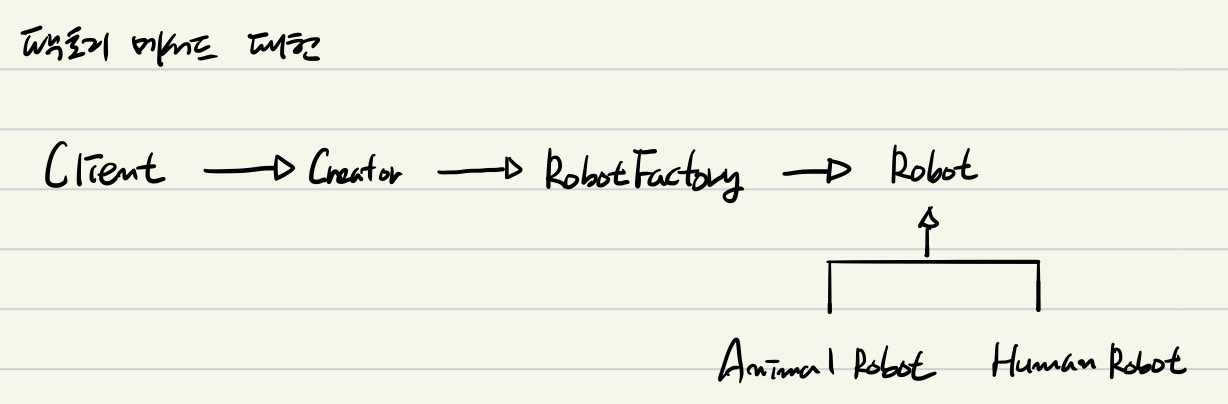 팩토리 메서드 패턴
Client Creator RobotFactory Robot
Animal Robot Human Robot